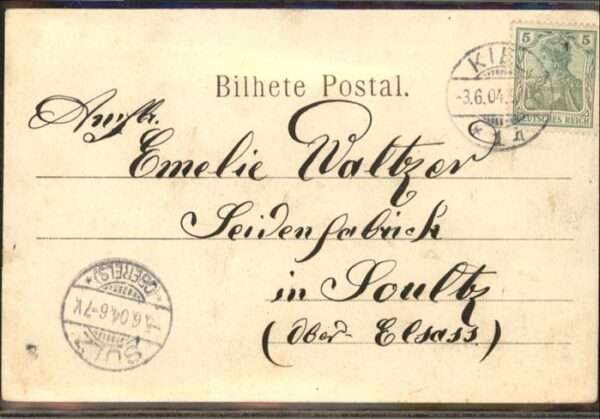 5 5
DEUTSCHES REICH
-3.6.04.
* 1 n
Bilhete Postal.
Emelie Waltzer
Seidenfabrick
in Soultz
(Ober-Elsass.)
SULZ
.6.04.6-7N.
(OBERELS)